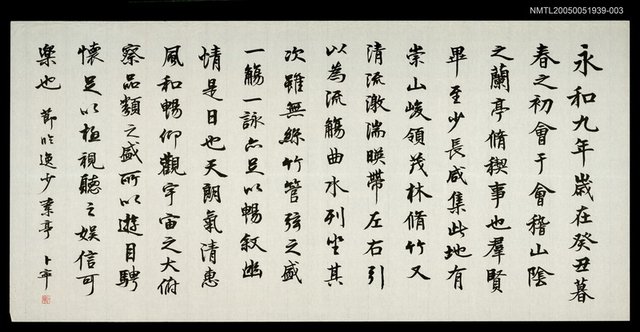 NMTL20050051939-003
永和九年歲在癸丑暮
春之初會于會稽山陰
之蘭亭脩稧事也羣賢
畢至少長咸集此地有
崇山峻領茂林脩竹又
清流激湍暎帶左右引
以為流觴曲水列坐其
次雖無絲竹管弦之盛
一觴一詠亦足以暢敘幽
情是日也天朗氣清惠
風和暢仰觀宇宙之大俯
察品類之盛所以遊目騁
懷足以極視聽之娛信可
樂也 節臨逸少蘭亭 卜寧